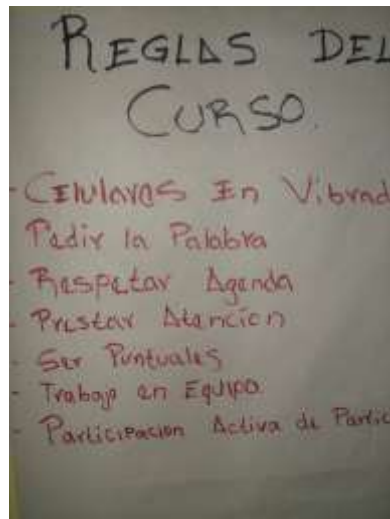 REGLAS DEL
CURSO.
- CElulares En Vibrad
Pedir la Palabra
- Respetar Agenda
- Prestar Atencion
- Ser Puntuales
- Trabajo en Equipo
- Participacion Activa de Partic